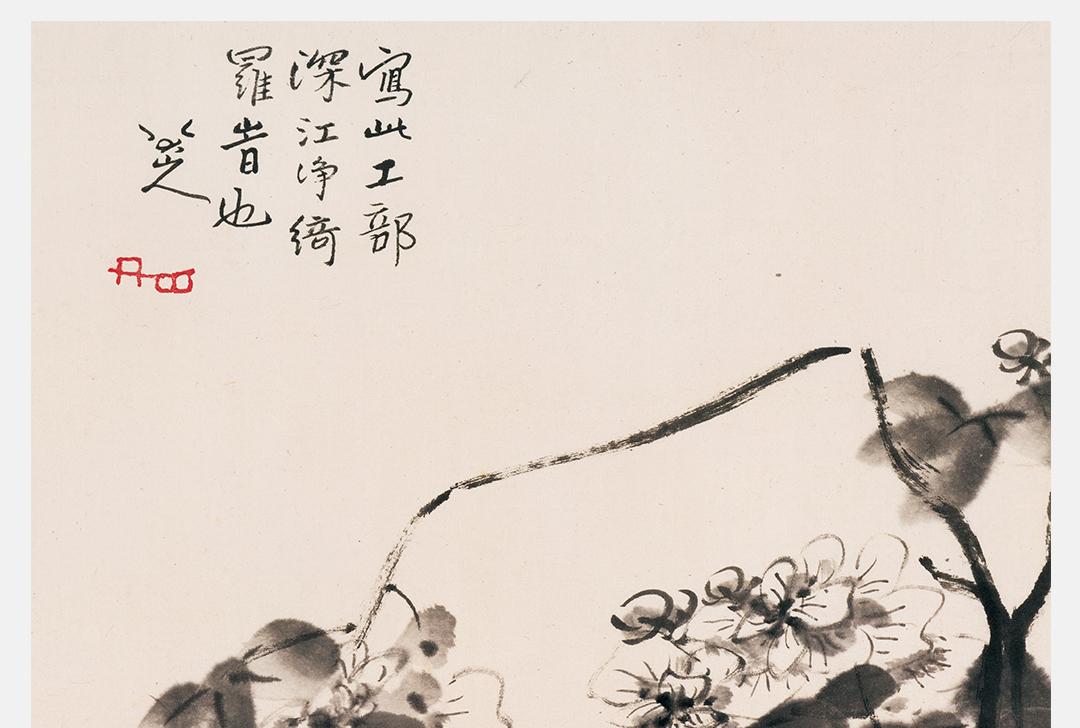 寫此工部
深江淨綺
羅旹也
八大山人